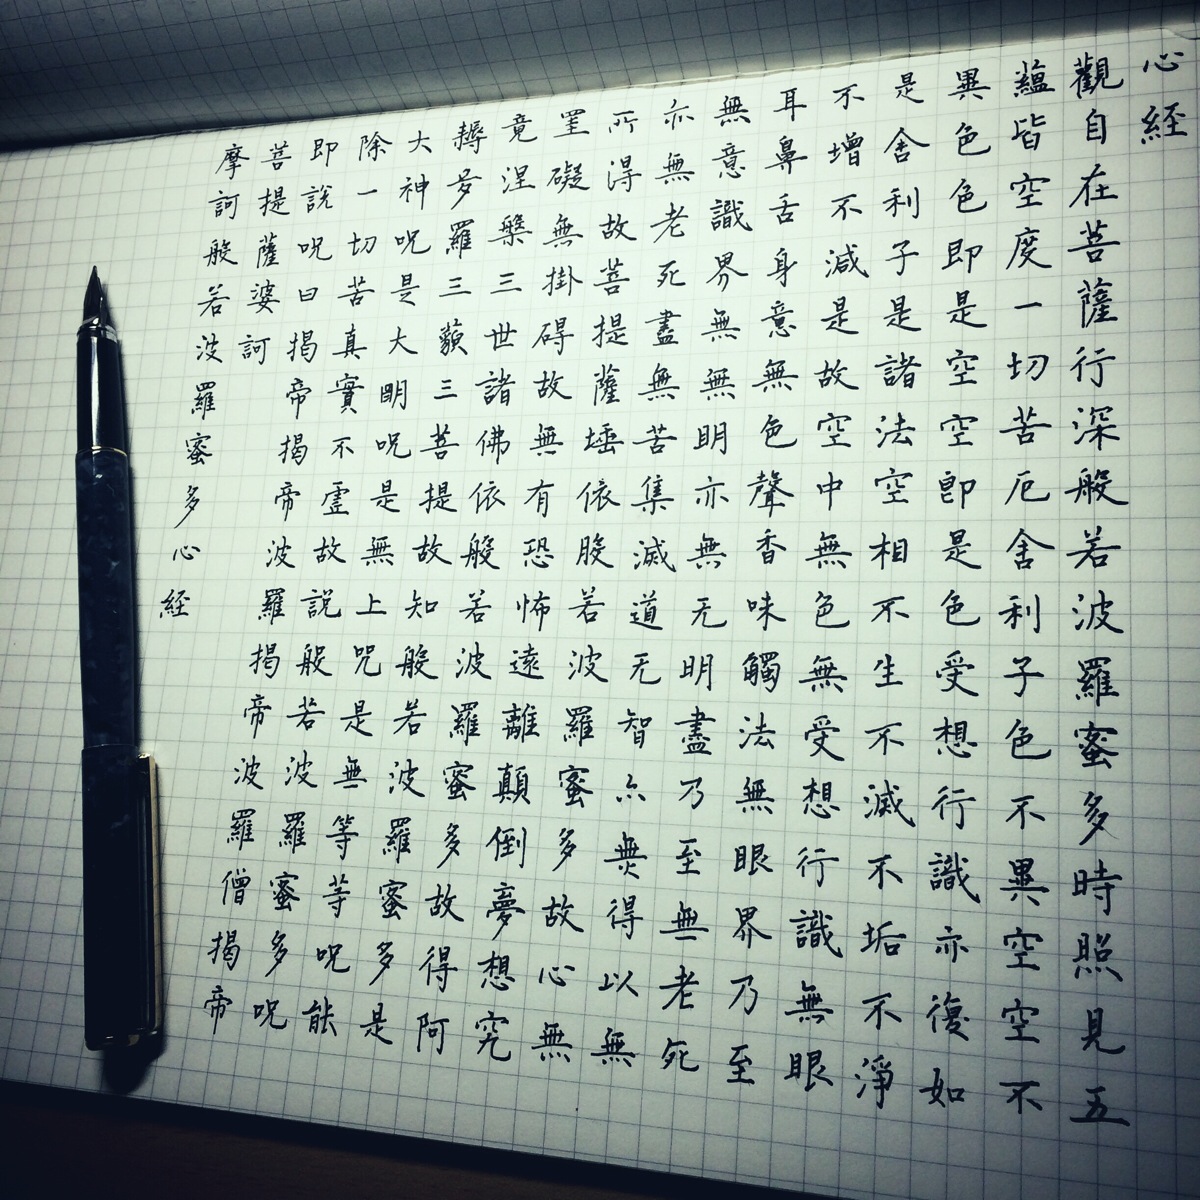 心経
觀自在菩薩行深般若波羅蜜多時照見五
蘊皆空度一切苦厄舍利子色不異空空不
異色色即是空空即是色受想行識亦復如
是舍利子是諸法空相不生不滅不垢不淨
不增不減是故空中無色無受想行識無眼
耳鼻舌身意無色聲香味觸法無眼界乃至
無意識界無無明亦無无明盡乃至無老死
亦無老死盡無苦集滅道无智亦無得以無
所得故菩提薩埵依般若波羅蜜多故心無
罣礙無掛碍故無有恐怖遠離顛倒夢想究
竟涅槃三世諸佛依般若波羅蜜多故得阿
耨多羅三藐三菩提故知般若波羅蜜多是
大神呪是大明呪是無上呪是無等等呪能
除一切苦真實不虛故說般若波羅蜜多呪
即說呪曰揭帝揭帝波羅揭帝波羅僧揭帝
菩提薩婆訶
摩訶般若波羅蜜多心経